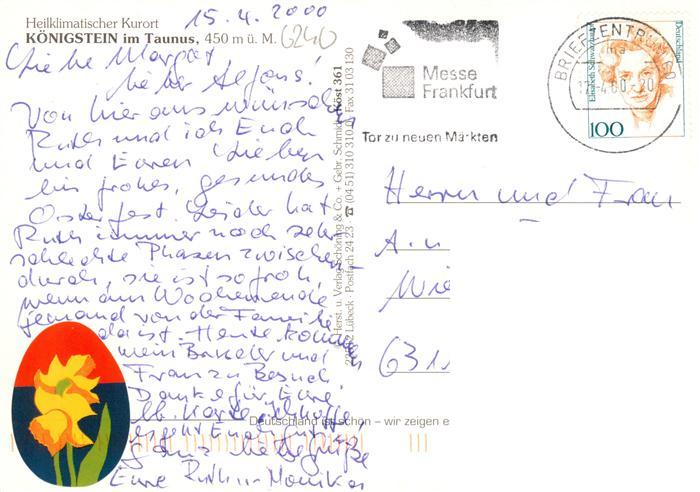 15.4.2000
Heilklimatischer Kurort
KÖNIGSTEIN im Taunus, 450 m ü. M. 6240
Liebe Margret
lieber Alfons!
Von hier aus wünschen
Ruth und ich Euch
und Euren Lieben
ein frohes, gesundes
Osterfest. Leider hat
Ruth immer noch sehr
schlechte Phasen zwischen-
durch, sie ist so froh,
wenn am Wochenende
jemand von der Familie
da ist. Heute kommen
mein Bruder und
zu Besuch
Danke für Eure
lb. Karte,
Euch
ganz liebe Grüße
Eure Ruth u. Monika
Köst 361
Herst. u. Verlag Schöning & Co. + Gebr. Schmidt
Lübeck · Postfach 24 23 ☎ (04 51) 310 310 Fax 31 03 130
Messe
Frankfurt
Tor zu neuen Märkten
BRIEFZENTRUM
20
Deutschland
Elisabeth Schwarzhaupt
100
Herrn und Frau
A. u
Wie
631
Deutschland ist schön – wir zeigen e